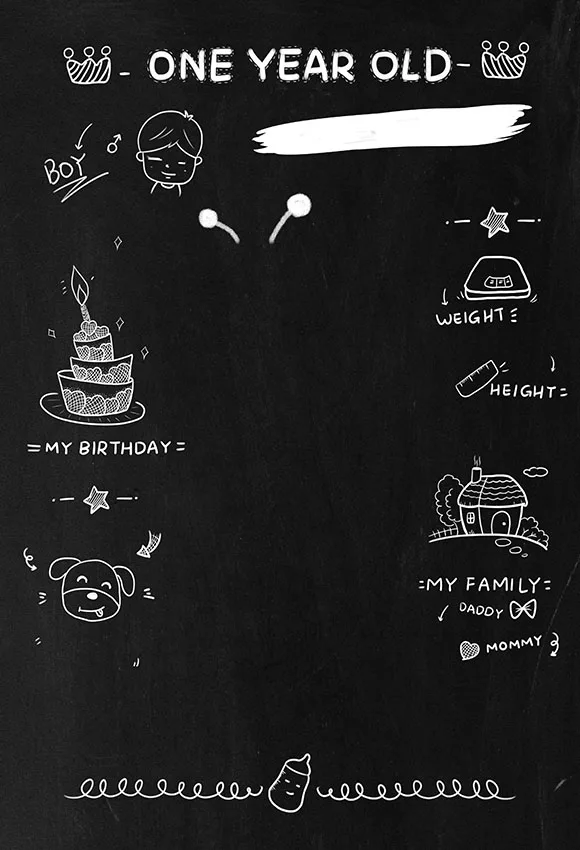 ONE YEAR OLD
BOY
WEIGHT
HEIGHT=
=MY BIRTHDAY=
=MY FAMILY=
DADDY
MOMMY